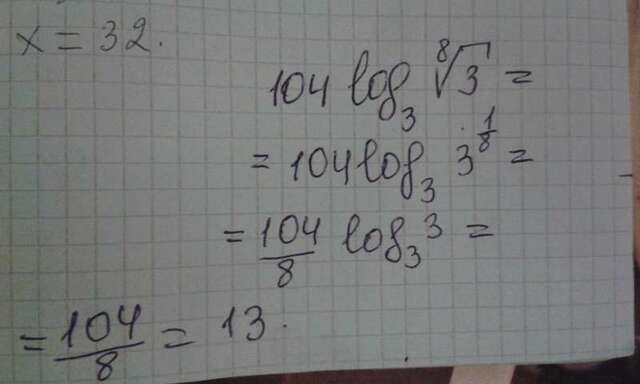 x = 32.
104 log₃ ⁸√3 =
= 104 log₃ 3^(1/8) =
= 104/8 log₃ 3 =
= 104/8 = 13.